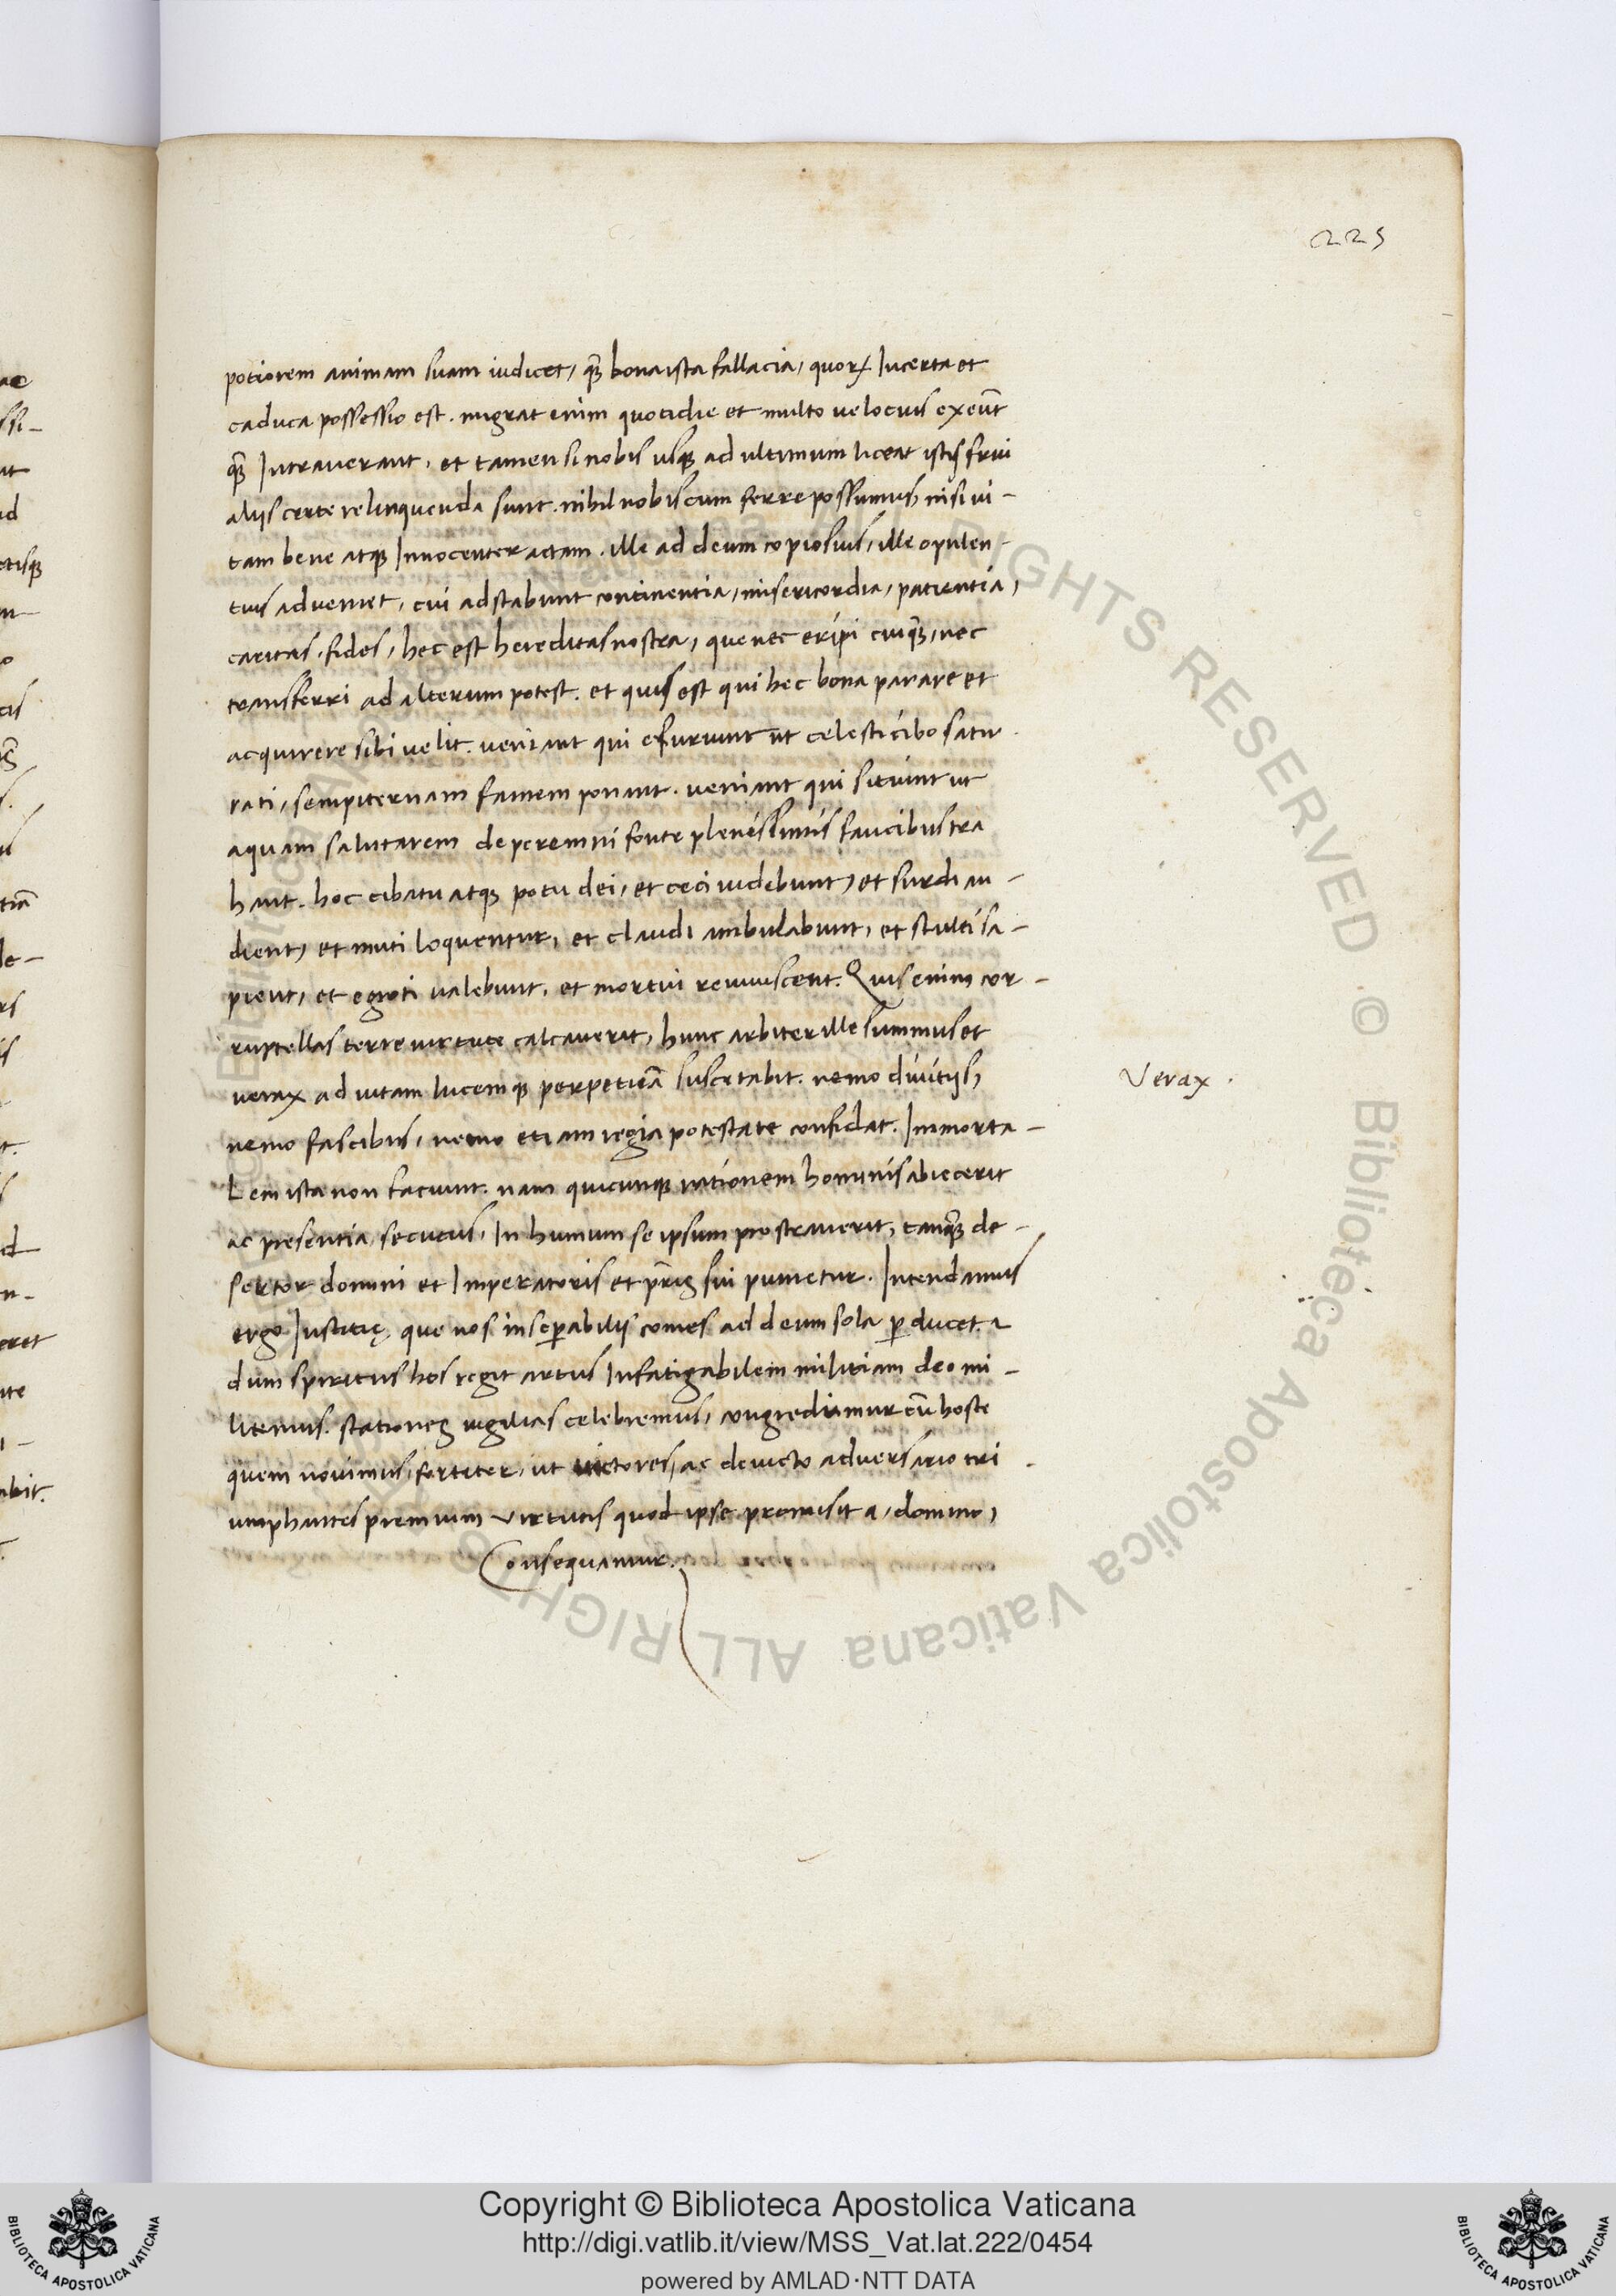 225
potiorem animam suam iudicet, quā bona ista fallacia, quoꝝ Incerta et
caduca possessio est. migrat enim quotidie et multo uelocius exeūt
quā Intrauerant, et tamen si nobis usqꝫ ad ultimum liceat istis frui
alijs certe relinquenda sunt. nihil nobiscum ferre possumus, nisi ui-
tam bene atqꝫ Innocenter actam. ille ad deum copiosius, ille opulen-
tius adueniet, cui adstabunt continentia, misericordia, patientia,
caritas, fides, hec est hereditas nostra, que nec eripi cuiquā, nec
transferri ad alterum potest. et quis est qui hec bona parare et
acquirere sibi uelit. ueniant qui esuriunt ut celesti cibo satu
rati, sempiternam famem ponant. ueniant qui sitiunt ut
aquam salutarem de peremni fonte plenissimis faucibus tra
hant. hoc cibatu atqꝫ potu dei, et ceci uidebunt, et surdi au-
dient, et muti loquentur, et claudi ambulabunt, et stulti sa-
pient, et egroti ualebunt, et mortui reuiuiscent. Quisenim cor-
ruptellas terre uirtute calcauerit, hunc arbiter ille summus et
uerax ad uitam lucemqꝫ perpetuā suscitabit. nemo diuitijs,
Verax.
nemo fascibus, nemo etiam regia potestate confidat. Immorta-
Lem ista non faciunt. nam quicunqꝫ rationem hominis abiecerit
ac presentia secutus, In humum se ipsum prostrauerit, tanquā de-
sertor domini et Imperatoris et pr̄is sui punietur. Intendamus
ergo Iustitię, que nos inseꝑabilis comes ad deum sola ꝑducet. 
dum spiritus hos regit artus Infatigabilem militiam deo mi-
litemus. stationes uigilias celebremus, congrediamur cū hoste
quem nouimus, fortiter, ut uictores, ac deuicto aduersario tri
umphantes premium virtutis quod ipse promisit a, domino,
Consequamur.
Copyright © Biblioteca Apostolica Vaticana
http://digi.vatlib.it/view/MSS_Vat.lat.222/0454
powered by AMLAD·NTT DATA
BIBLIOTECA APOSTOLICA VATICANA
BIBLIOTECA APOSTOLICA VATICANA
© Biblioteca Apostolica Vaticana ALL RIGHTS RESERVED